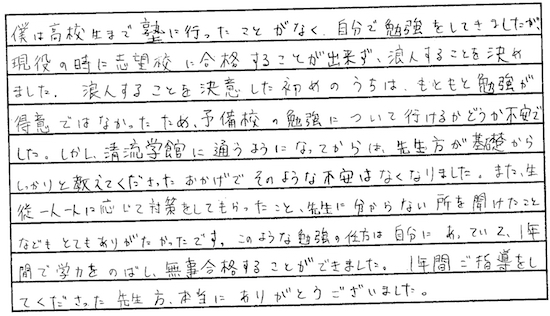 僕は高校生まで塾に行ったことがなく、自分で勉強をしてきましたが、
現役の時に志望校に合格することが出来ず、浪人することを決め
ました。浪人することを決意した初めのうちは、もともと勉強が
得意ではなかったため、予備校の勉強について行けるかどうか不安で
した。しかし、清流学館に通うようになってからは、先生方が基礎から
しっかりと教えてくださったおかげでそのような不安はなくなりました。また、生
徒一人一人に応じて対策をしてもらったこと、先生に分からない所を聞けたこと
などもとてもありがたかったです。このような勉強の仕方は自分にあっていて、1年
間で学力をのばし、無事合格することができました。1年間ご指導をし
てくださった先生方、本当にありがとうございました。